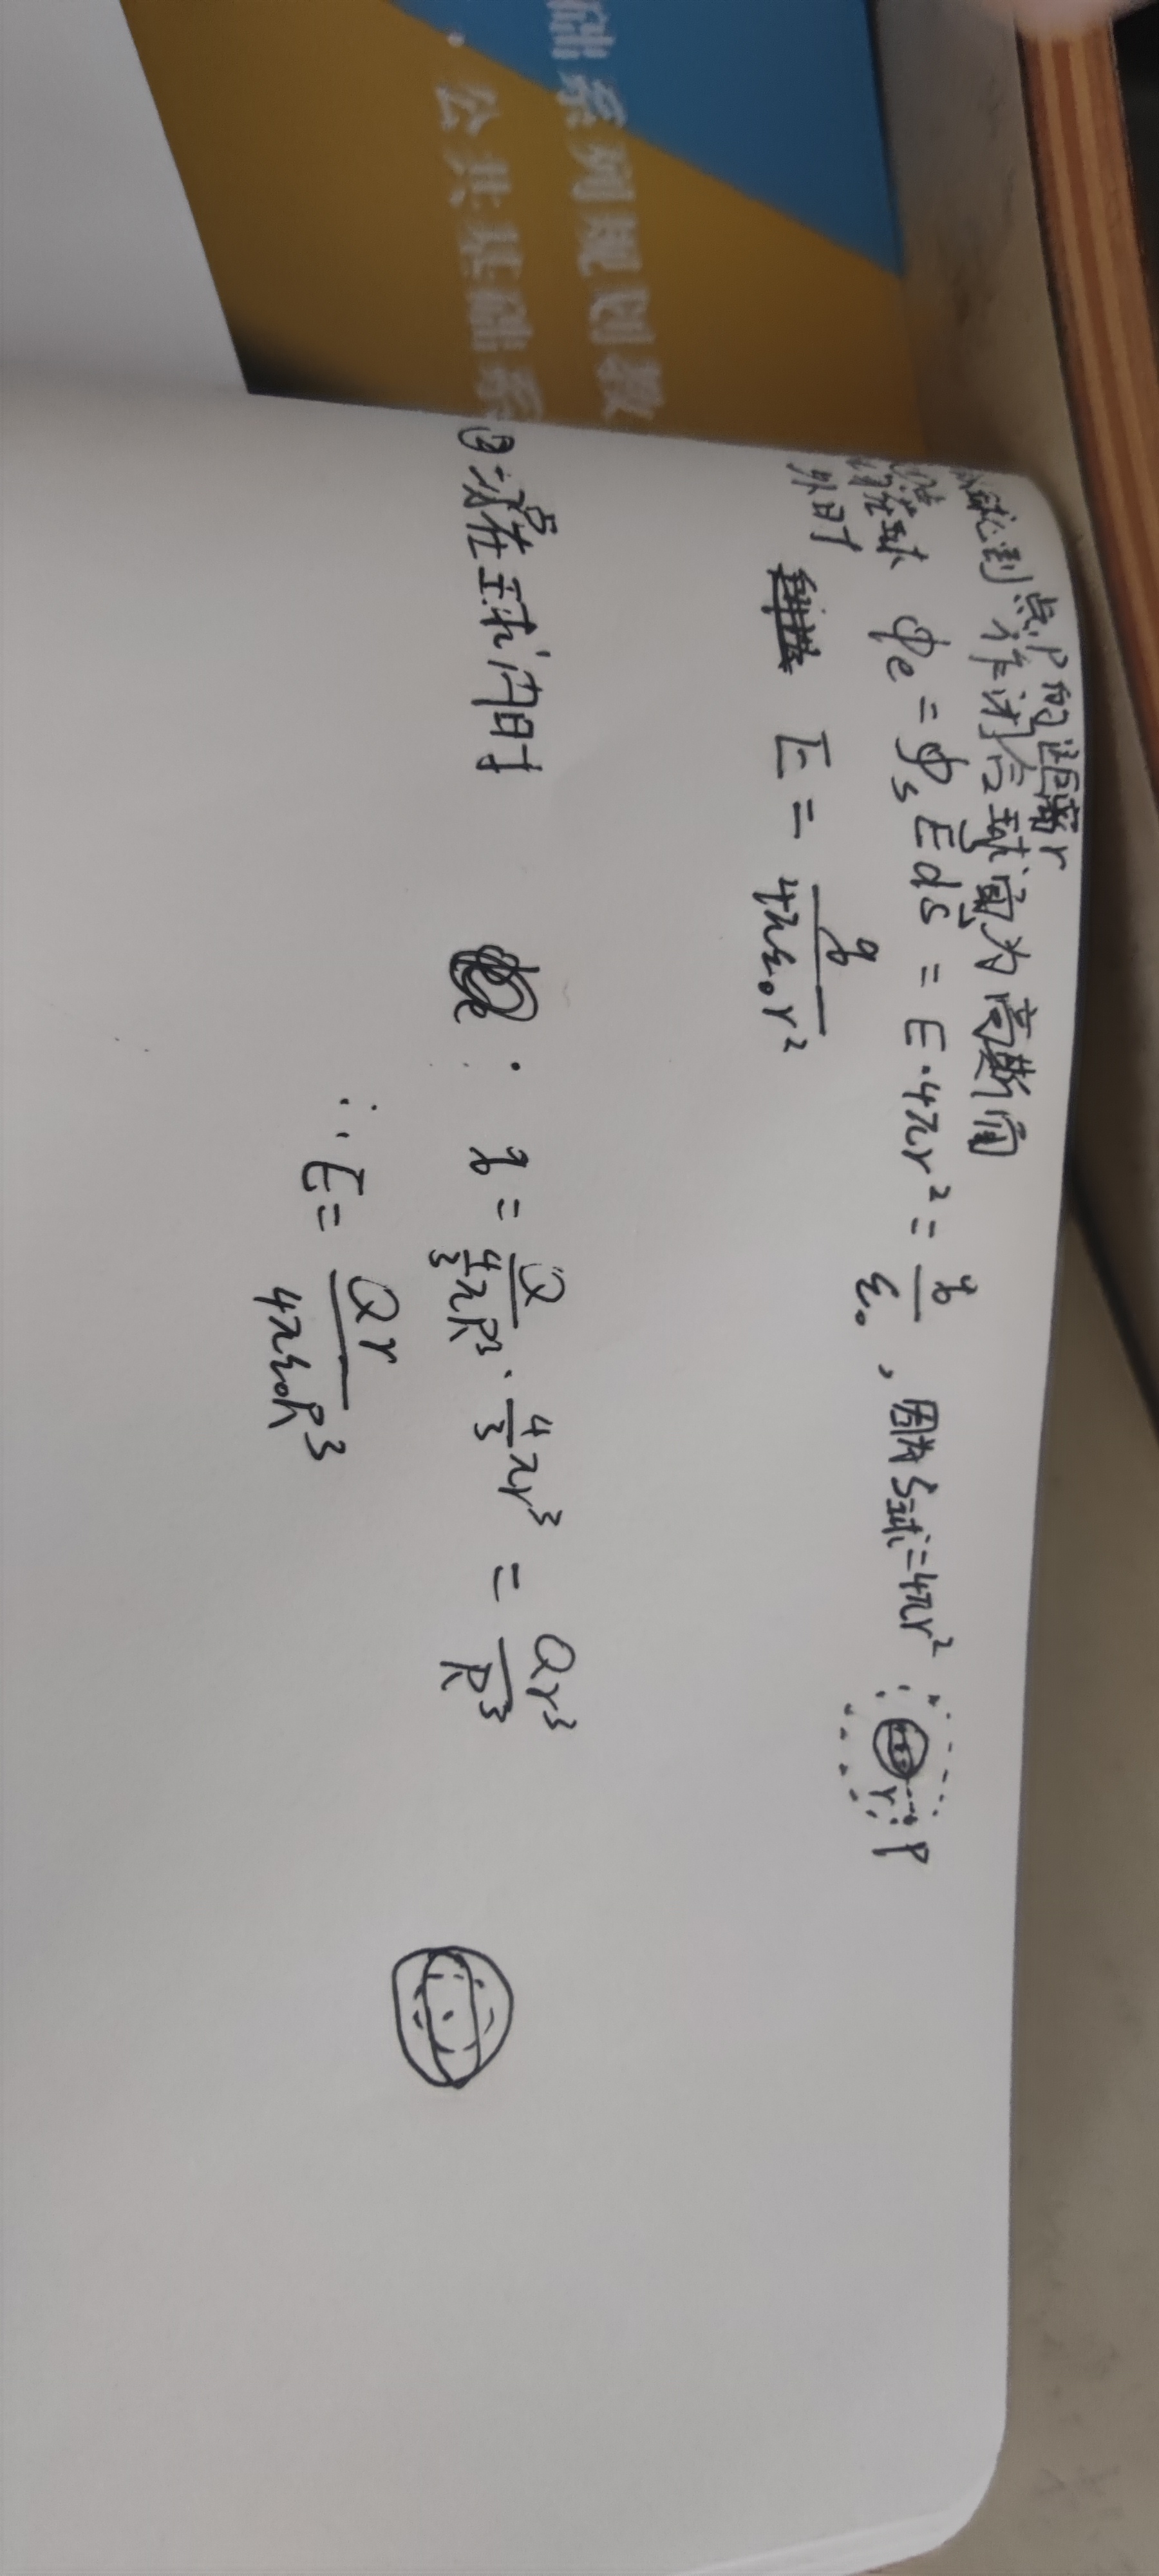 础系列规划教
·公共基础系
球心到点P的距离r
作闭合球面为高斯面
球
外时
Φe = ∮s E⃗ dS⃗ = E·4πr² = q/ε₀ , 因为S球=4πr²
r P
E = q/4πε₀r²
②当点在球内时 : q = Q/(4/3 πR³) · 4/3 πr³ = Qr³/R³
∴ E = Qr/4πε₀R³